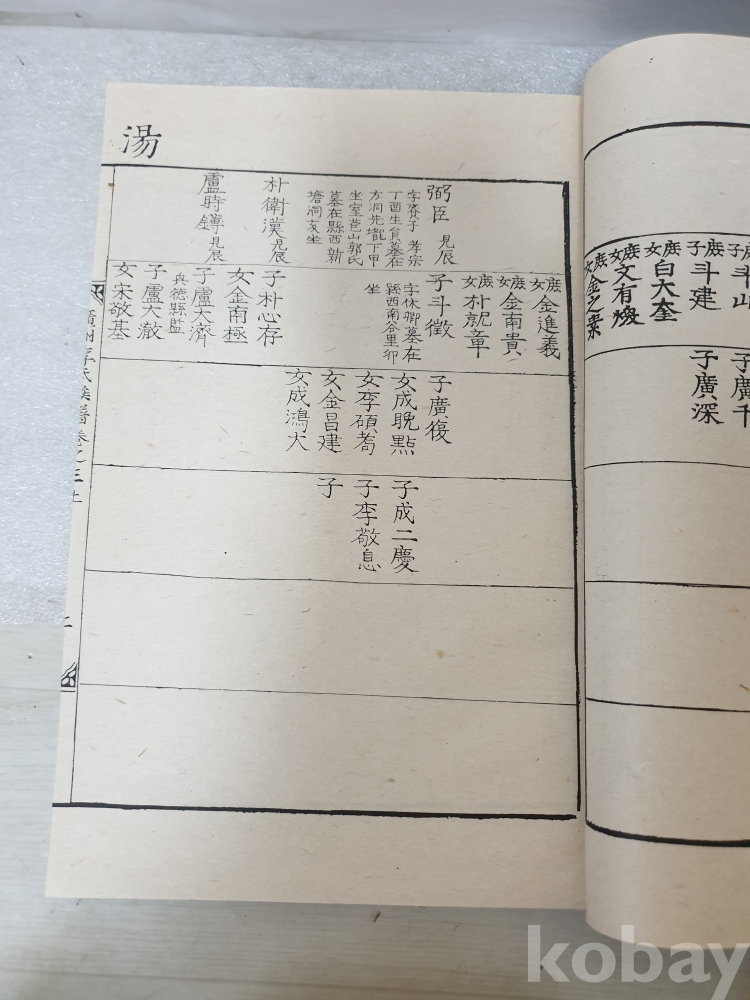 子斗山
庶子斗建
庶女白大奎
庶女文有煥
庶女金之業
子廣千
子廣深
湯
弼臣 見辰
字賚子 孝宗
丁酉生員墓在
方洞先壠下甲
坐室苞山郭氏
墓在縣西新
塘洞亥坐
朴衛漢 見辰
盧時鐏 見辰
庶女金進義
庶女金南貴
庶女朴就章
子斗徵
字休卿墓在
縣西南谷里卯
坐
子朴心存
女金南極
子盧大濟
兵德縣監
子盧大澈
女宋敬基
子廣復
女成晩點
女李碩䓁
女金昌建
女成鴻大
子成二慶
子李敬息
子
廣州李氏族譜卷之三上
二
kobay